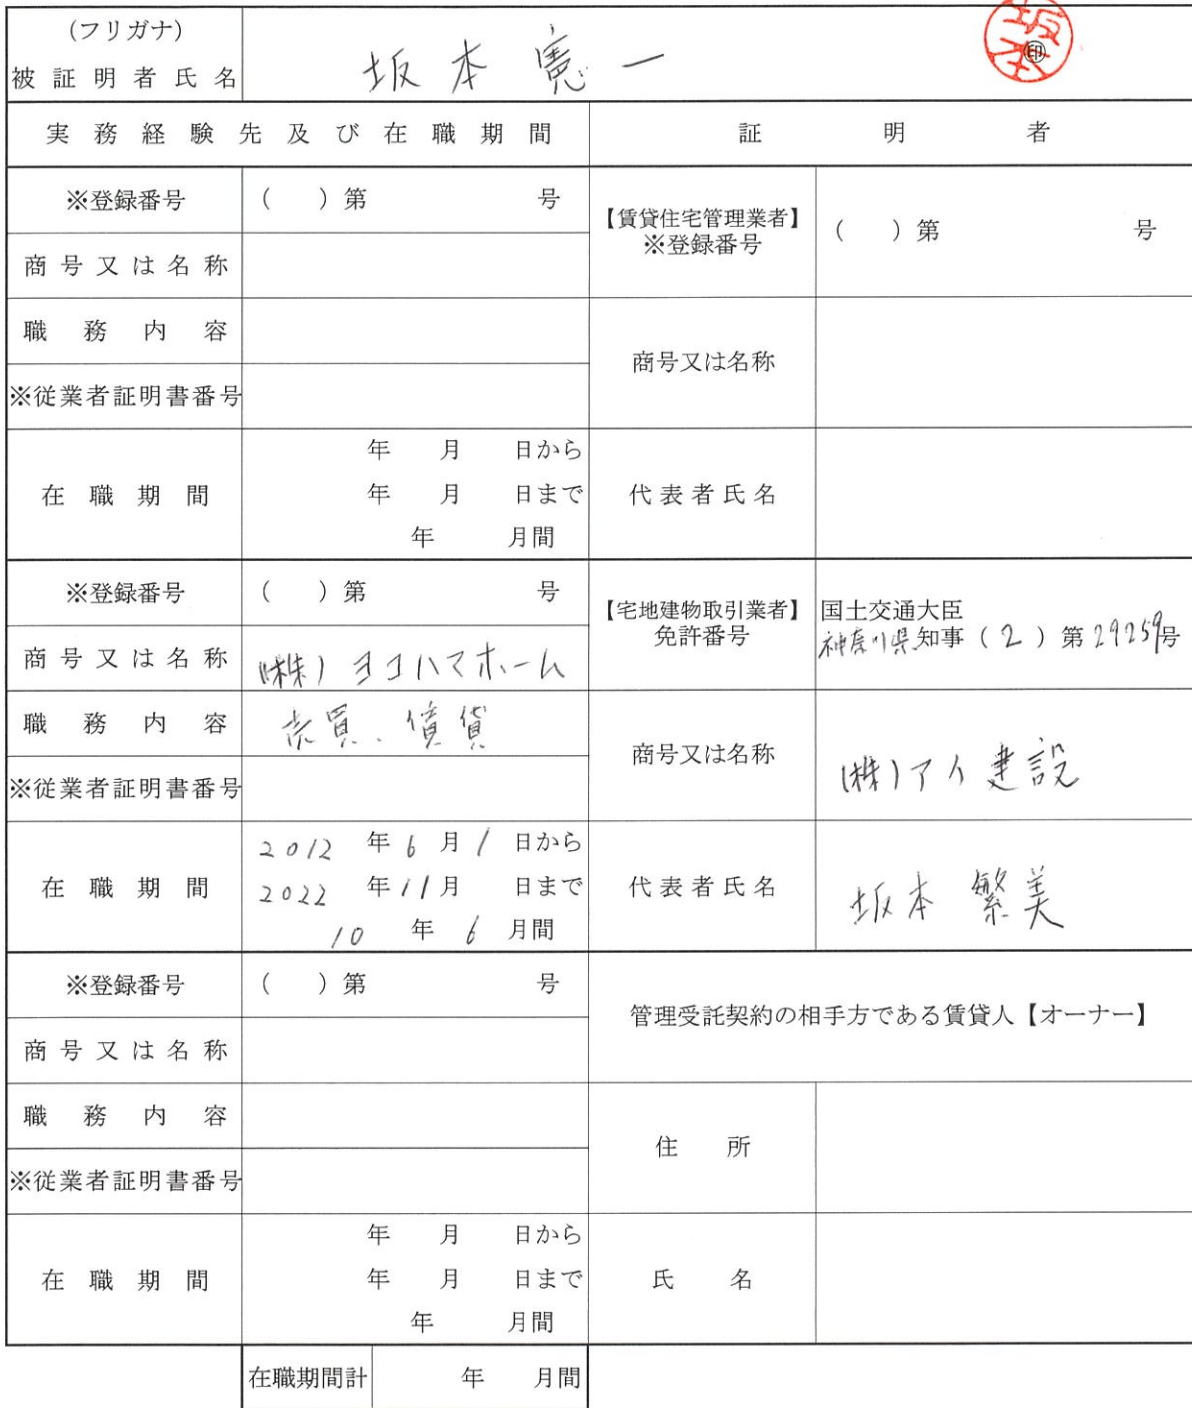 (フリガナ)
被証明者氏名 坂本 憲一 ㊞ 坂本
実務経験先及び在職期間 証明者
※登録番号 ( )第 号
商号又は名称
職務内容
※従業者証明書番号
在職期間 年 月 日から
年 月 日まで
年 月間
【賃貸住宅管理業者】
※登録番号 ( )第 号
商号又は名称
代表者氏名
※登録番号 ( )第 号
商号又は名称 (株)ヨコハマホーム
職務内容 売買、賃貸
※従業者証明書番号
在職期間 2012 年 6 月 1 日から
2022 年 11 月 日まで
10 年 6 月間
【宅地建物取引業者】
免許番号
国土交通大臣
神奈川県知事(2)第29259号
商号又は名称 (株)アイ建設
代表者氏名 坂本 繁美
※登録番号 ( )第 号
商号又は名称
職務内容
※従業者証明書番号
在職期間 年 月 日から
年 月 日まで
年 月間
管理受託契約の相手方である賃貸人【オーナー】
住所
氏名
在職期間計 年 月間